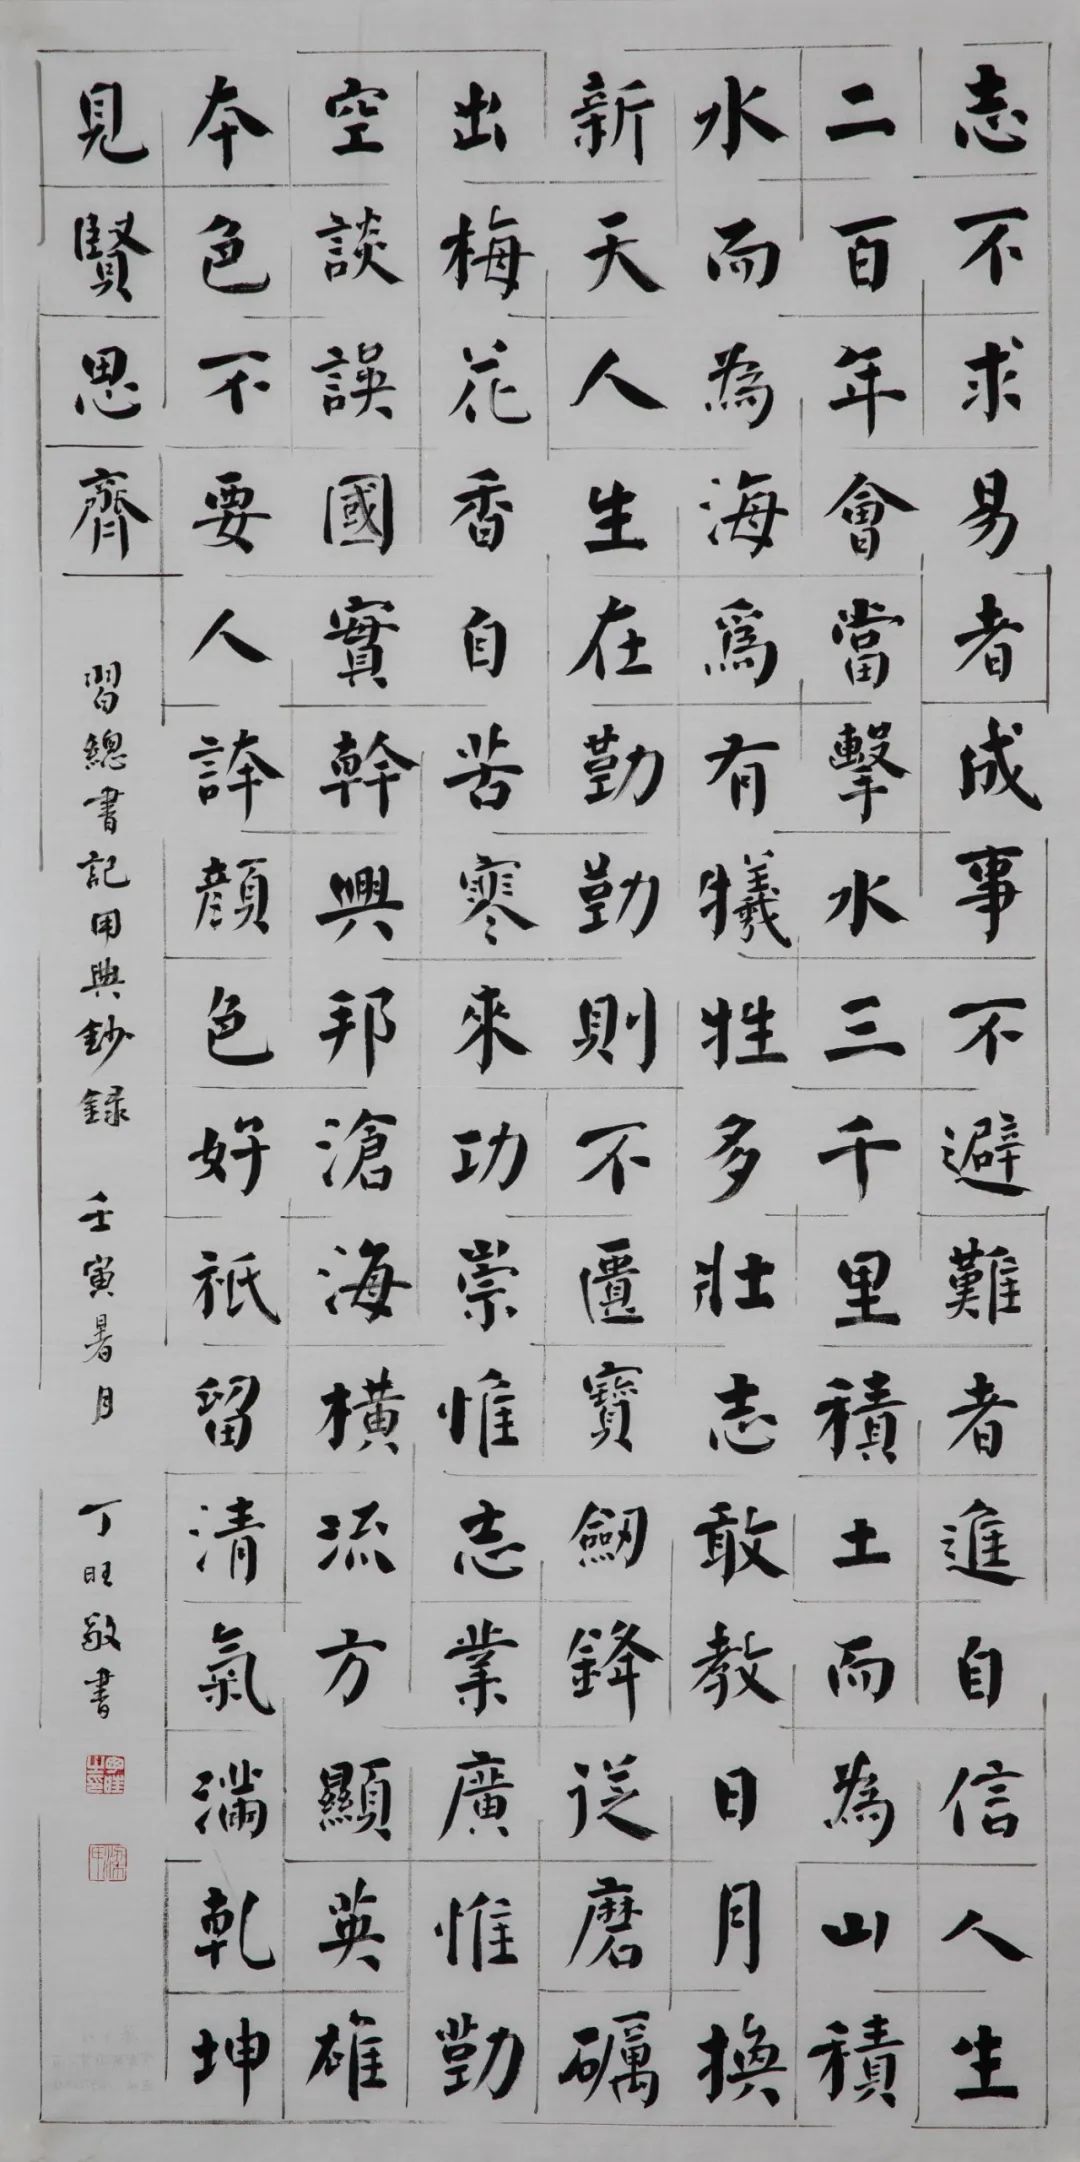 志不求易者成事不避難者進自信人生
二百年會當擊水三千里積土而為山積
水而為海爲有犧牲多壯志敢教日月換
新天人生在勤勤則不匱寶劒鋒從磨礪
出梅花香自苦寒來功崇惟志業廣惟勤
空談誤國實幹興邦滄海橫流方顯英雄
本色不要人誇顔色好祇留清氣滿乾坤
見賢思齊
習總書記用典鈔録 壬寅暑月 丁旺敬書